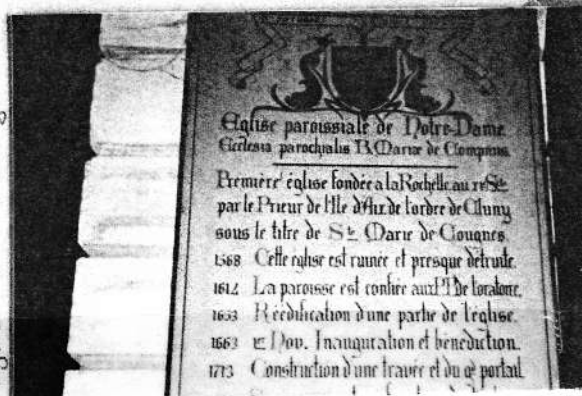 Eglise paroissiale de Notre-Dame
Ecclesia parochialis B. Mariæ de Compnis
Première église fondée a la Rochelle au XIe Sle
par le Prieur de l'Ile d'Aix de l'ordre de Cluny
sous le titre de Ste Marie de Cougnes
1568 Cette eglise est ruinée et presque détruite.
1612 La paroisse est confiée aux PP. De loratoire.
1653 Réédification d'une partie de l'église.
1663 Nov. Inauguration et bénédiction.
1713 Construction d'une travée et du gd portail